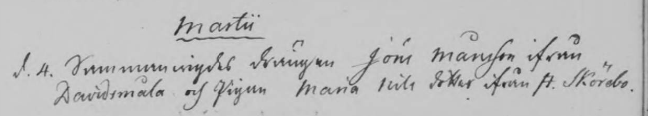 Martii
d. 4. Sammanvigdes drängen Jöns Månsson ifrån
Davidsmåla och Pigan Maria Nils dotter ifrån St. Skörebo.